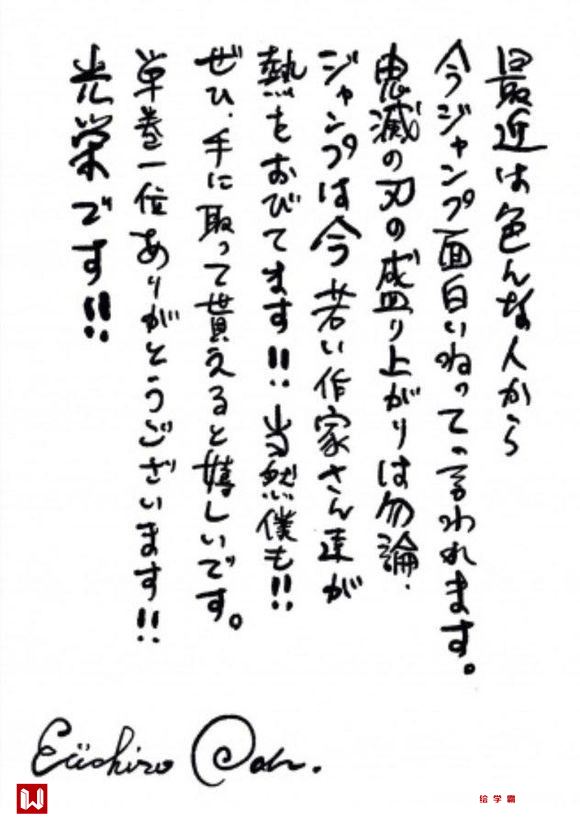 最近は色んな人から
今ジャンプ面白いねって言われます。
鬼滅の刃の盛り上がりは勿論、
ジャンプは今若い作家さん達が
熱をおびてます!!当然僕も!!
ぜひ、手に取って貰えると嬉しいです。
単巻一位ありがとうございます!!
光栄です!!
Eiichiro Oda.
绘学霸